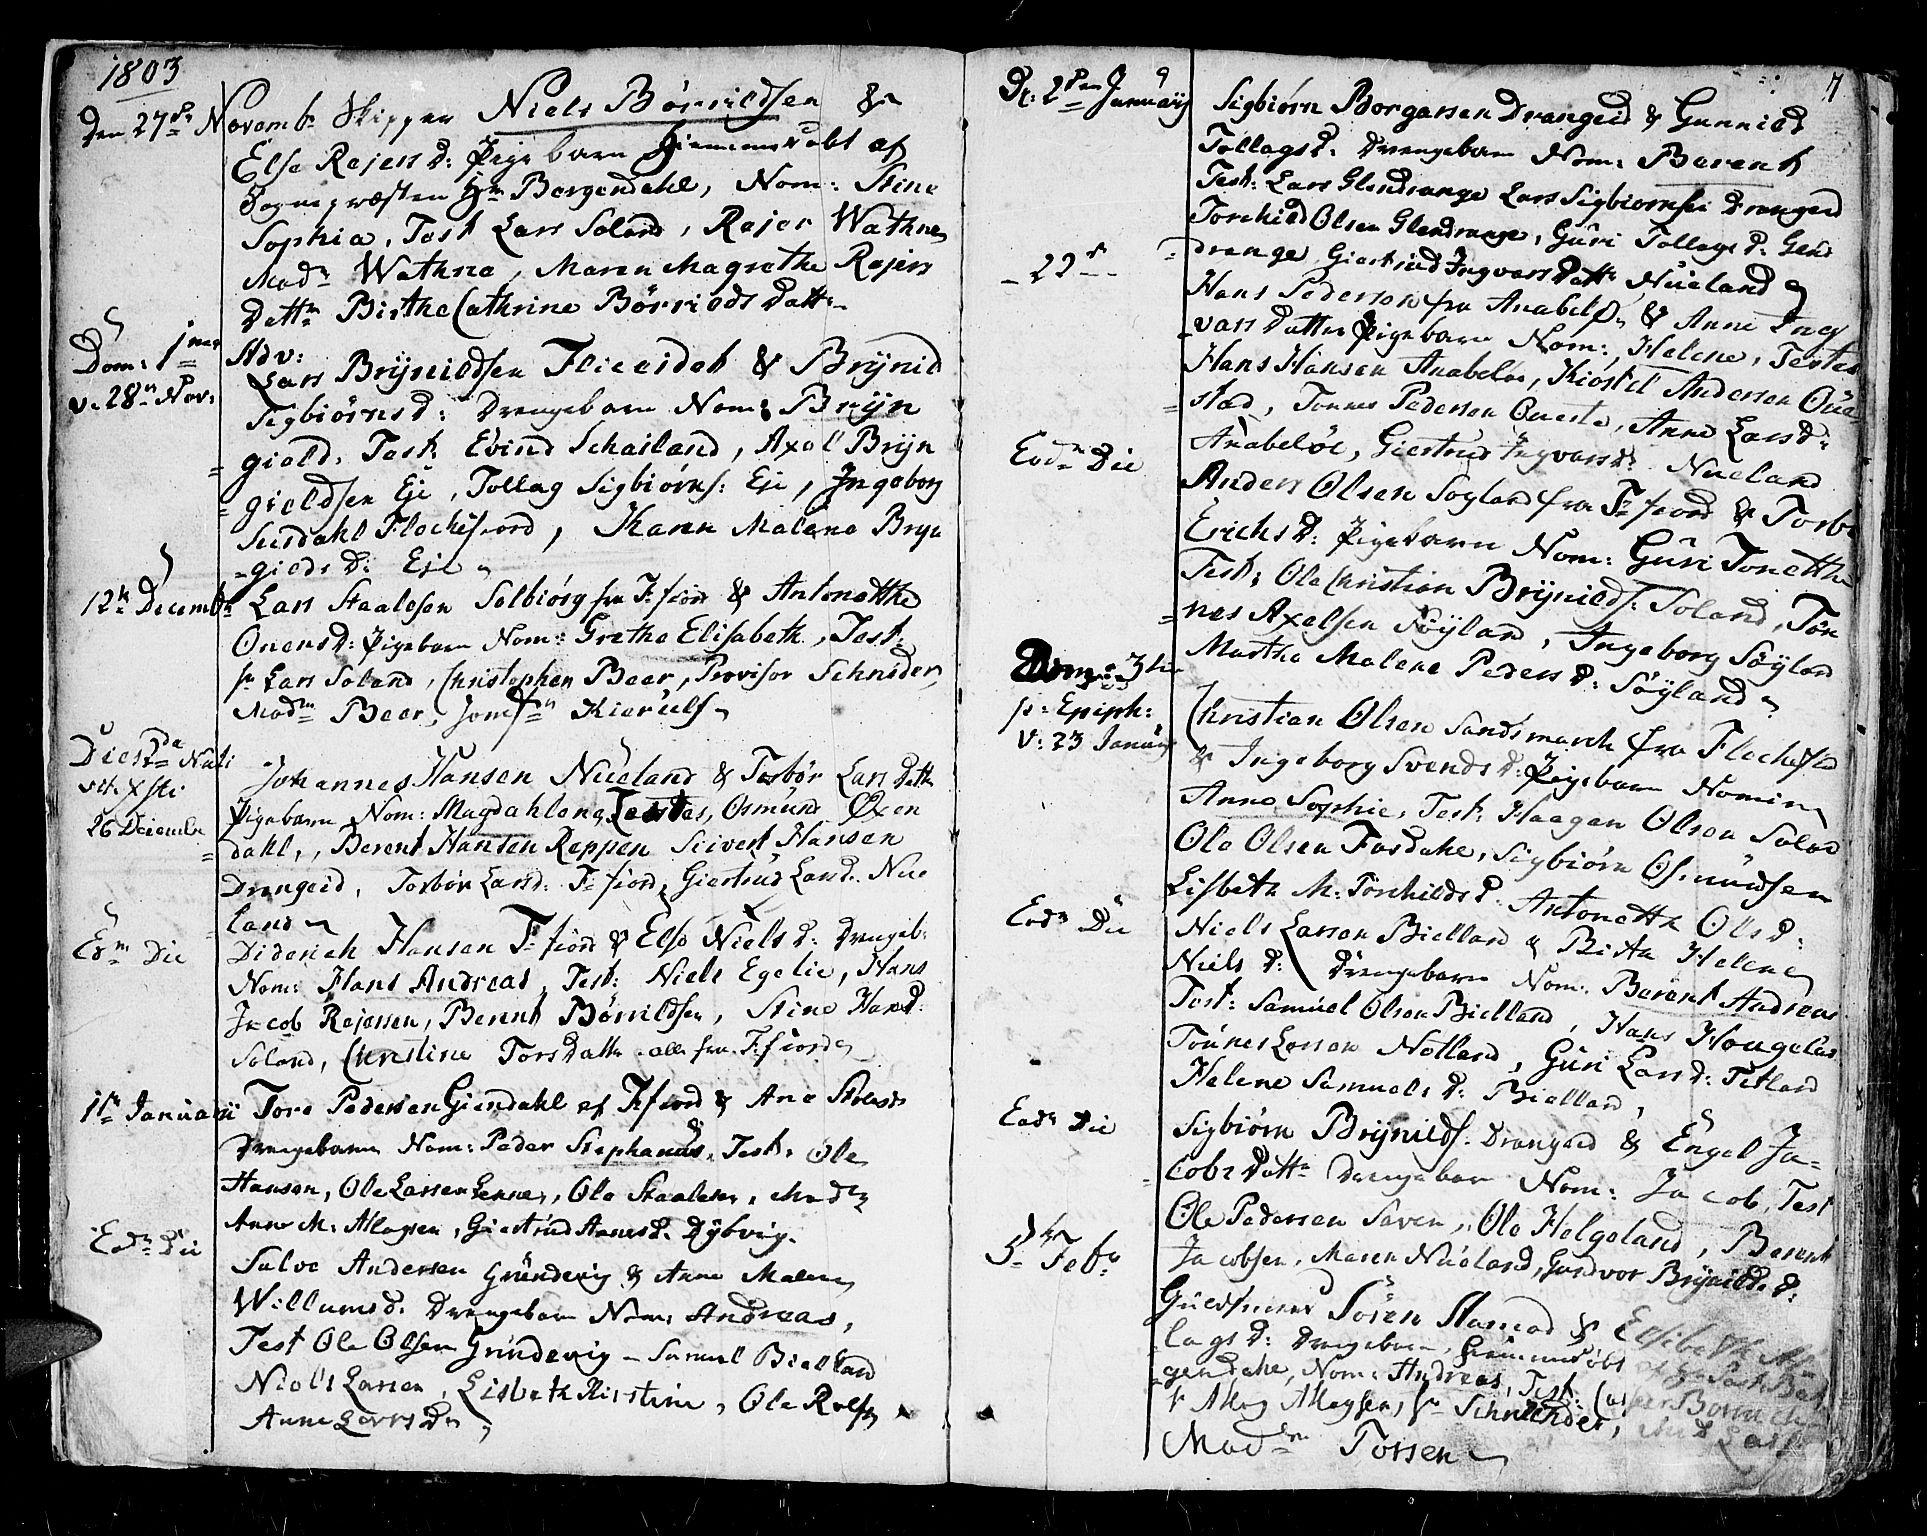 1803
Den 27de Novemb: Skipper Niels Börrildsen &
Else Rejers D: Pigebarn Hiemmedöbt af
Sognepræsten Hr Bergendahl, Nom: Stine
Sophia, Test Lars Soland, Rejer Wathne
Madm Wathne, Maren Magrethe Rejers
Dattr Birthe Cathrine Börrilds Dattr
Dom: 1ma Adv:
v. 28n Nov: Lars Brÿnildsen Fliceidet & Brÿnild
Sigbiörns D: Drengebarn Nom: Brÿn
gield, Test: Evind Schailand, Axel Brÿn
gieldsen Eje, Tollag Sigbiörns: Eje, Ingeborg
Surdahl Flechefiord, Karen Malena Bryn
gieds D: Eje
12te Decembr Lars Staalesen Solbiörg fra F:fiord & Antonette
Oners D: Pigebarn Nom: Grethe Elisabeth, Test:
Sr Lars Soland, Christopher Beer, Provisor Schnider,
Madm Beer, Jomfn Kierulf
Dies 2da Nati
vit. Xsti Johannes Hansen Nueland & Torbör Lars Dattr
26 Decembr Pigebarn Nom: Magdahlena, Testes, Osmund Oxen
dahl, Berent Hansen Reppen Seivert Hansen
Drangeid, Torbör Larsd: F:fiord, Giertrud Larsd. Nue
land
Edm Die Diderich Hansen F:fiord & Else Niels D: Drengeb:
Nom: Hans Andreas, Test: Niels Egelie, Hans
Jacob Rejersen, Berent Börrildsen, Stine Hansd:
Soland, Christine Tors Dattr alle fra F:fiord
1ste Januarii Tore Pedersen Giendahl af F:fiord & Ane Stolesd:
Drengebarn Nom: Peder Stephanus, Test: Ole
Hansen, Ole Larsen Lenne, Ole Staalesen, Madm
Anne M: Allagsen, Giertrud Aanesd. Dÿbvig.
Eodm Die Salve Andersen Gründevig & Anne Malene
Willumsd. Drengebarn Nom: Andreas,
Test Ole Olsen Gründevig Samuel Bielland
Niels Larsen, Lisbeth Kirstine, Ole Rolfs
Anne Lars Dr
7
D: 2den Januarj Sigbiörn Borgersen Drangeid & Gunnild
Tollags D: Drengebarn Nom: Berent
Test: Lars Glendrange Lars Sigbiörnsen Drangeid
Torchild Olsen Glendrange, Guri Tollags D. Glend
drange Giertrud Ingvars Dattr Nueland
22de Hans Pedersen fra Anabelöe & Anne Ing
vars Datter Pigebarn Nom: Helene, Testes
Hans Hansen Anabelöe, Kiöstel Andersen Oue
stad, Tönnes Pedersen Oueste, Anne Larsd:
Anabelöe, Giertrud Ingvarsd: Nueland
Eodm Die Anders Olsen Soyland fra F:fiord & Torbr
Erichs D: Pigebarn Nom: Guri Tonette
Test: Ole Christian Brÿnilds: Soland, Tön
nes Axelsen Söÿland, Ingeborg Söÿland
Martha Malene Peders D: Söÿland
Dom: 3tia
p: Epiph: Christian Olsen Sandsmarck fra Flechefiord
v: 23 Januarj & Ingeborg Svends D: Pigebarn Nomine
Anne Sophie, Test: Haagen Olsen Soland
Ole Olsen Fasdahe, Sigbiörn Osmundsen
Lisbeth M: Torchilds D. Antonette Ols D:
Eodm Die Niels Larsen Bielland & Birta Helene
Niels D: Drengebarn Nom: Berent Andreas
Test: Samuel Olsen Bielland, Hans Hougeland
Tönnes Larsen Netland, Guri Larsd: Tetland
Helene Samuels D: Bielland,
Eodm Die Sigbiörn Brÿnilds. Drangeid & Engel Ja-
cobs Dattr Drengebarn Nom: Jacob, Test
Ole Pedersen Seven, Ole Helgeland, Berent
Jacobsen, Maren Nueland, Gundvor Brÿnilds D:
5te Febr Guldsmed Sören Stamad & Elsibeth Al
lags D: Drengebarn, Hiemmedöbt af Hr Past: Ber
gendahl, Nom: Andreas, Test: Casper Bornich
Sr Allag Allagsen, Sr Schneider,
Madm Torsen